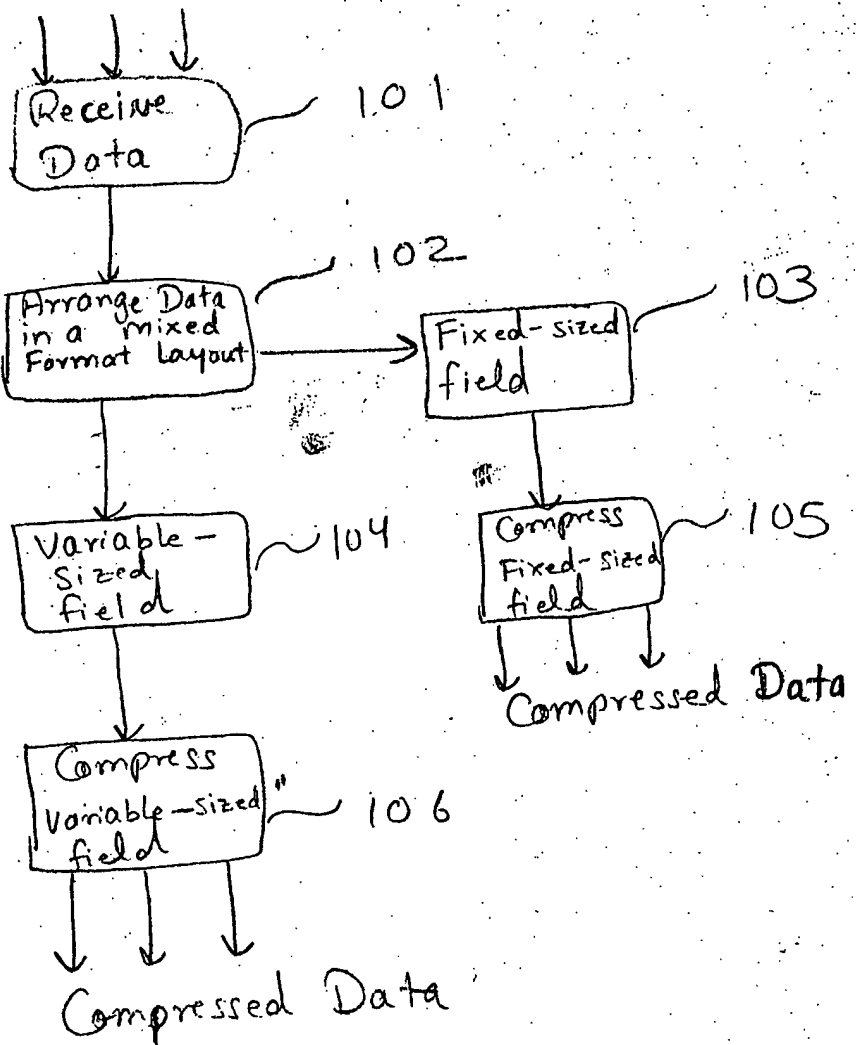 Receive
Data
101
Arrange Data
in a mixed
Format Layout
102
Fixed-sized
field
103
Variable-
Sized
field
104
Compress
Fixed-Sized
field
105
Compressed Data
Compress
Variable-sized
field
106
Compressed Data